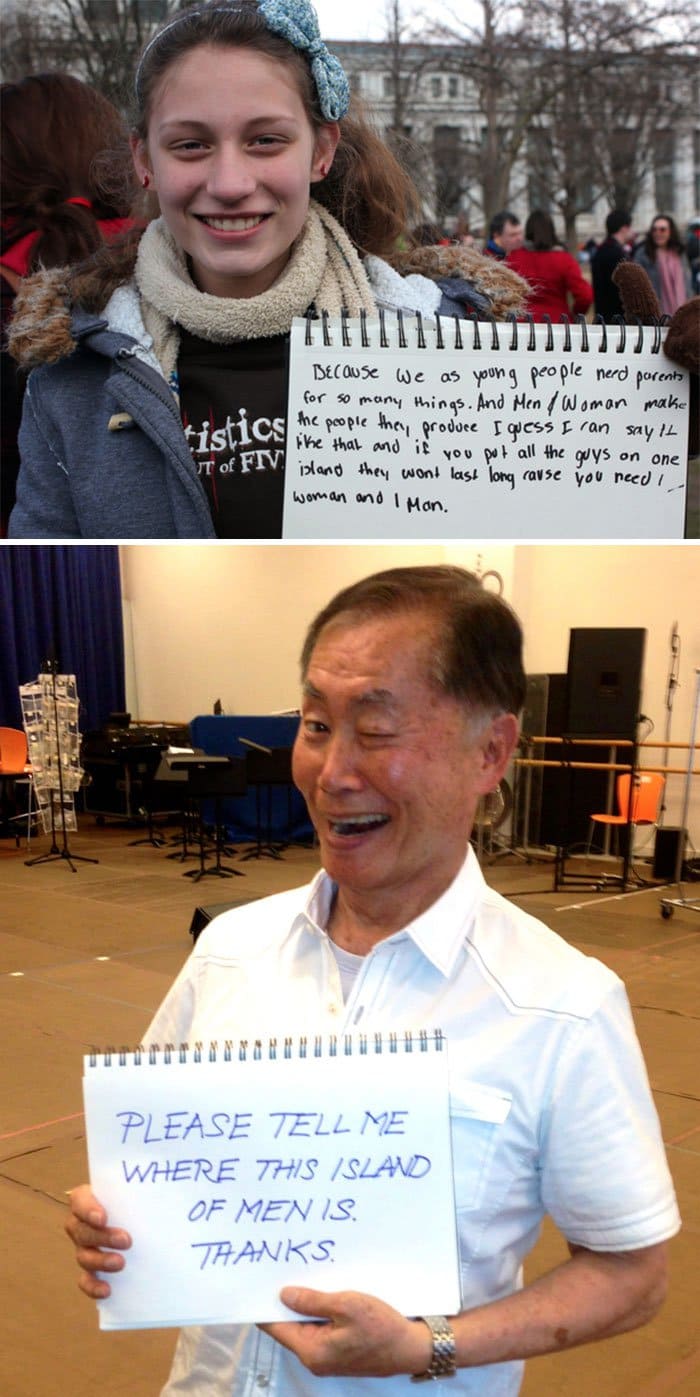 tistics
UT of FIV
Because we as young people need parents
for so many things. And Men / Woman make
the people they produce I guess I can say it
like that and if you put all the guys on one
island they wont last long cause you need 1
woman and 1 Man.
PLEASE TELL ME
WHERE THIS ISLAND
OF MEN IS.
THANKS.